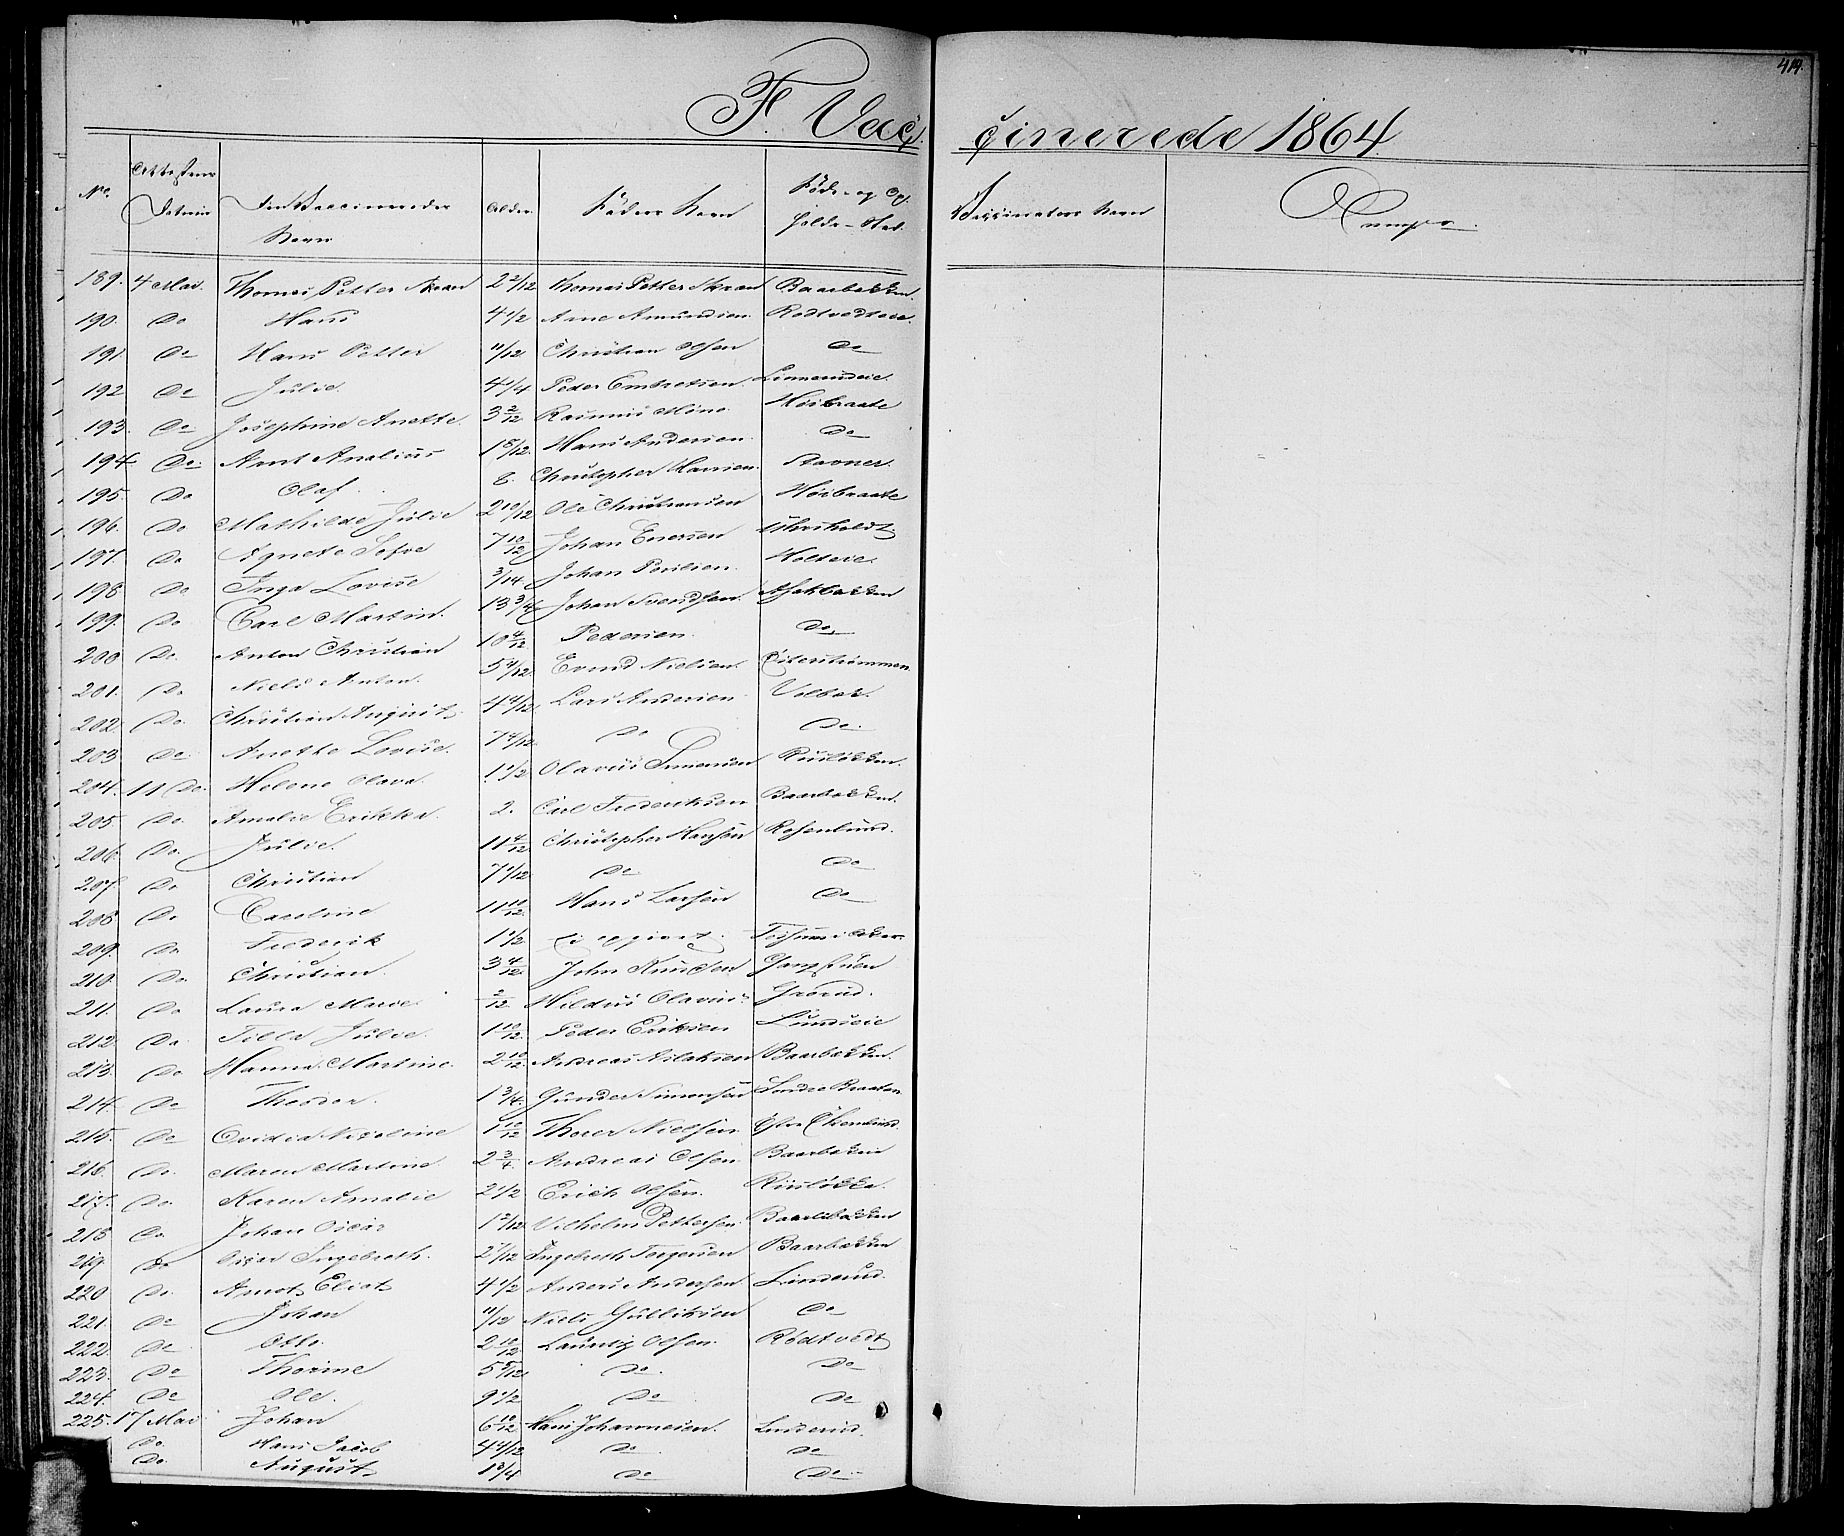 414.
F. Vacçinerede 1864.
No. Attestens Datum Den Vaccineredes Navn Alder. Faders Navn Føde- og Opholds-Sted. Vaccinators Navn Anmærk.
189. 4 Mai. Thomas Petter 2 2/12 Thomas Petter Baarbækken.
190. Do Hans 4 1/2 Arne Amundsen. Rødtvedteie.
191 Do Hans Petter 11/12 Christian Olsen Do
192 Do Julie. 4 1/4 Peder Embretsen.
193. Do Josephine Anette. 3 2/12 Rasmus Moe. Høibraate
194 Do. Arnt Analius 1 8/12 Hans Andersen. Do
195 Do Olaf. 8. Christopher Hansen. Stovner.
196. Do Mathilde Julie 2 10/12 Ole Christiansen Høibraate
197. Do Agnete Sofie 7 10/12 Johan Enersen
198 Do Inga Lovise 3/14 Johan Holteie.
199. Do Carl Martin. 13 3/4 Johan Svendsen.
200 Do. Anton Christian 10 4/12 Pedersen. Do.
201. Do Niels Anton. 5 4/12 Evend Nielsen.
202. Do. Christian August 4 4/12 Lars Andersen
203 Do Anette Lovise. 7 4/12 Do Do.
204. 11 Do. Helene Olava. 1 1/2 Olavus Simensen Rusløkken.
205 Do. Amalie Erikka. 2. Carl Frederiksen Baarbækken.
206. Do. Julie. 11 4/12 Christopher Hansen Rosenlund.
207. Do Christian 7 1/12 Do Do
208 Do. Caroline 11 10/12 Hans Larsen Do
209. Do Frederik 1 1/2
210. Do. Christian. 3 4/12 John Knudsen
211. Do Laura Marie. 2/12 Olavus Grorud.
212. Do Tilla Julie. 1 10/12 Peder Eriksen Lundseie
213. Do Hanna Martine. 2 10/12 Andreas Aslaksen Baarbækken.
214. Do Theodor. 1 3/4. Gunder Simensen Søndre Braaten
215. Do Ovidia Nicoline 1 10/12 Thorer Nielsen
216. Do. Maren Martine 2 3/4 Andreas Olsen Baarbækken
217. Do. Karen Amalie 2 1/2 Erich Olsen. Rusløkka.
218 Do. Johan Oscar 1 2/12 Vilhelm Pettersen. Baarbækken
219. Do Oscar Ingebreth. 2 7/12 Ingebreth Torgersen Baarbækken
220 Do. Arnt Elias 4 1/2 Anders Andersen Linderud.
221. Do Johan 11/12 Niels Gulliksen Do
222. Do Otto 2 10/12 Lauritz Olsen. Rødtvedt
223. Do Thorine 5 8/12 Do. Do
224. Do Ole. 9 1/2 Do Do
225. 17 Mai Johan 6 10/12 Hans Johannesen.
Do. Hans Jacob 4 4/12 Do Do
Do. August 1 3/4 Do Do.